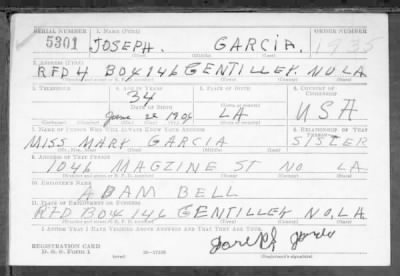 SERIAL NUMBER 1. NAME (Print) ORDER NUMBER
5301 JOSEPH. GARCIA. 1935
(First) (Middle) (Last)
2. ADDRESS (Print)
RFD 4 BOX 146 GENTILLEY N.O. LA
(Town) (County) (State)
3. TELEPHONE 4. AGE IN YEARS 5. PLACE OF BIRTH 6. COUNTRY OF CITIZENSHIP
34
DATE OF BIRTH LA USA
June 1906
7. NAME OF PERSON WHO WILL ALWAYS KNOW YOUR ADDRESS 8. RELATIONSHIP OF THAT PERSON
MISS MARY GARCIA SISTER
(First) (Middle) (Last)
9. ADDRESS OF THAT PERSON
1046 MAGZINE ST NO LA
(Town) (County) (State)
10. EMPLOYER'S NAME
ADAM BELL
11. PLACE OF EMPLOYMENT OR BUSINESS
RFD BOX 146 GENTILLEY N.O. LA
(Town) (County) (State)
I AFFIRM THAT I HAVE VERIFIED ABOVE ANSWERS AND THAT THEY ARE TRUE.
REGISTRATION CARD
D. S. S. Form 1 (Registrant's signature)